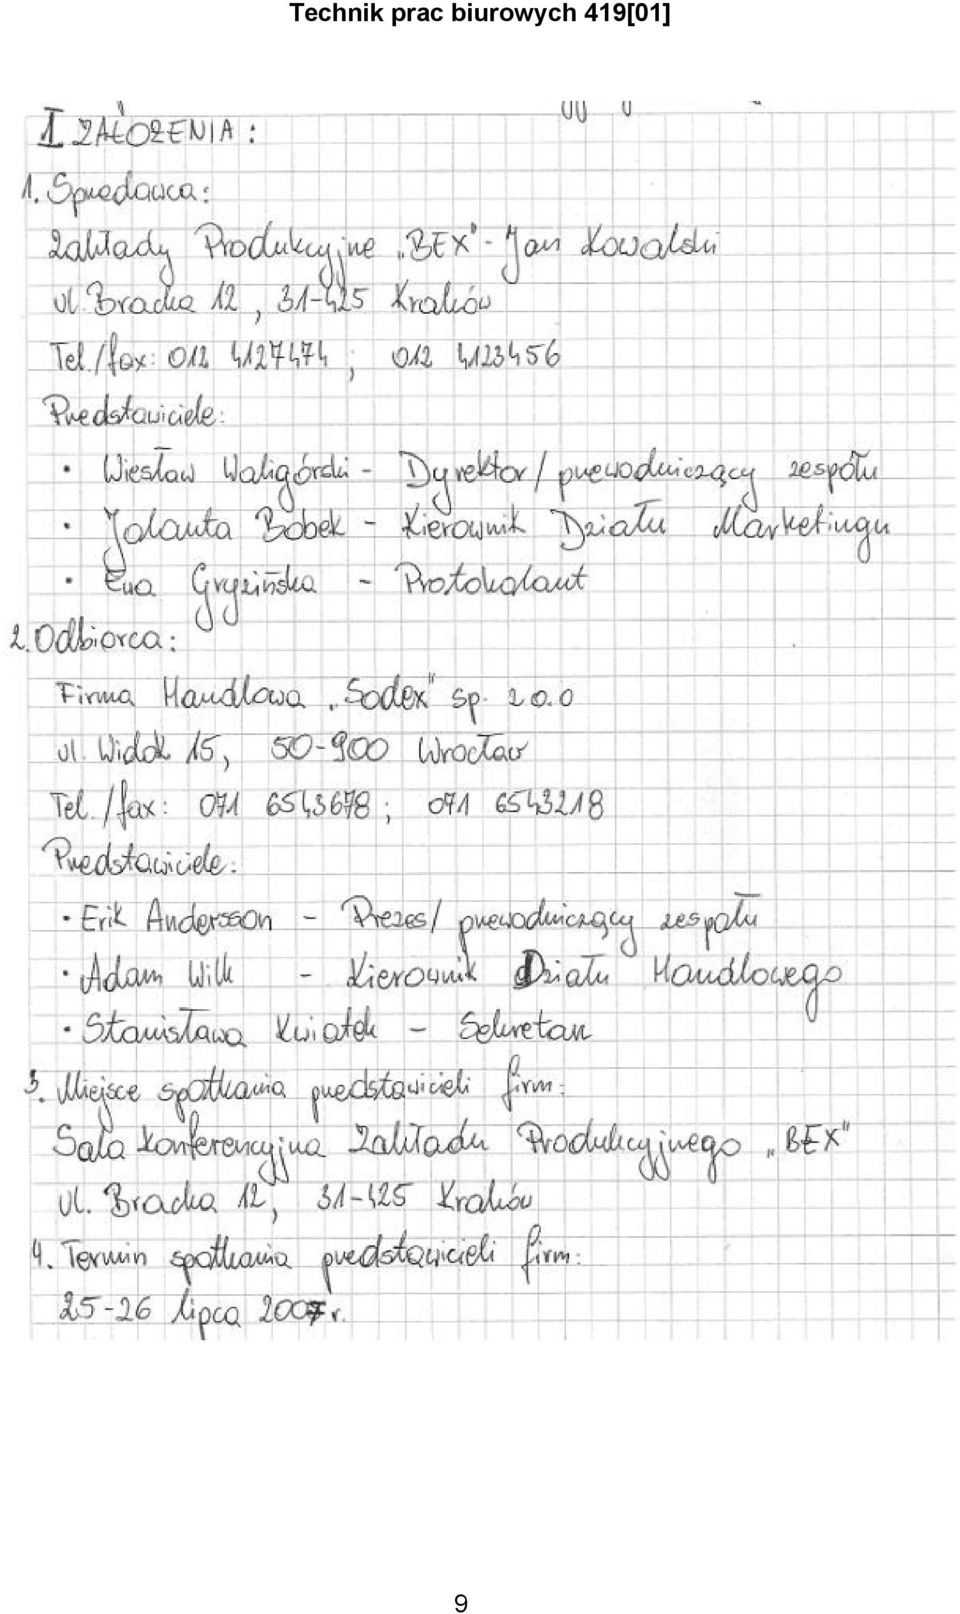 Technik prac biurowych 419[01]
I ZAŁOŻENIA:
1. Sprzedawca:
Zakłady Produkcyjne „BEX" - Jan Kowalski
ul. Bracka 12, 31-425 Kraków
Tel./fax: 012 4127474; 012 4123456
Przedstawiciele:
• Wiesław Waligórski - Dyrektor/przewodniczący zespołu
• Jolanta Bobek - Kierownik Działu Marketingu
• Ewa Gryzińska - Protokolant
2. Odbiorca:
Firma Handlowa „Sodex" sp. z o.o
ul. Widok 15, 50-900 Wrocław
Tel./fax: 071 6543678; 071 6543218
Przedstawiciele:
• Erik Andersson - Prezes/przewodniczący zespołu
• Adam Wilk - Kierownik Działu Handlowego
• Stanisława Kwiatek - Sekretarz
3. Miejsce spotkania przedstawicieli firm:
Sala konferencyjna Zakładu Produkcyjnego „BEX"
ul. Bracka 12, 31-425 Kraków
4. Termin spotkania przedstawicieli firm:
25-26 lipca 2007 r.
9